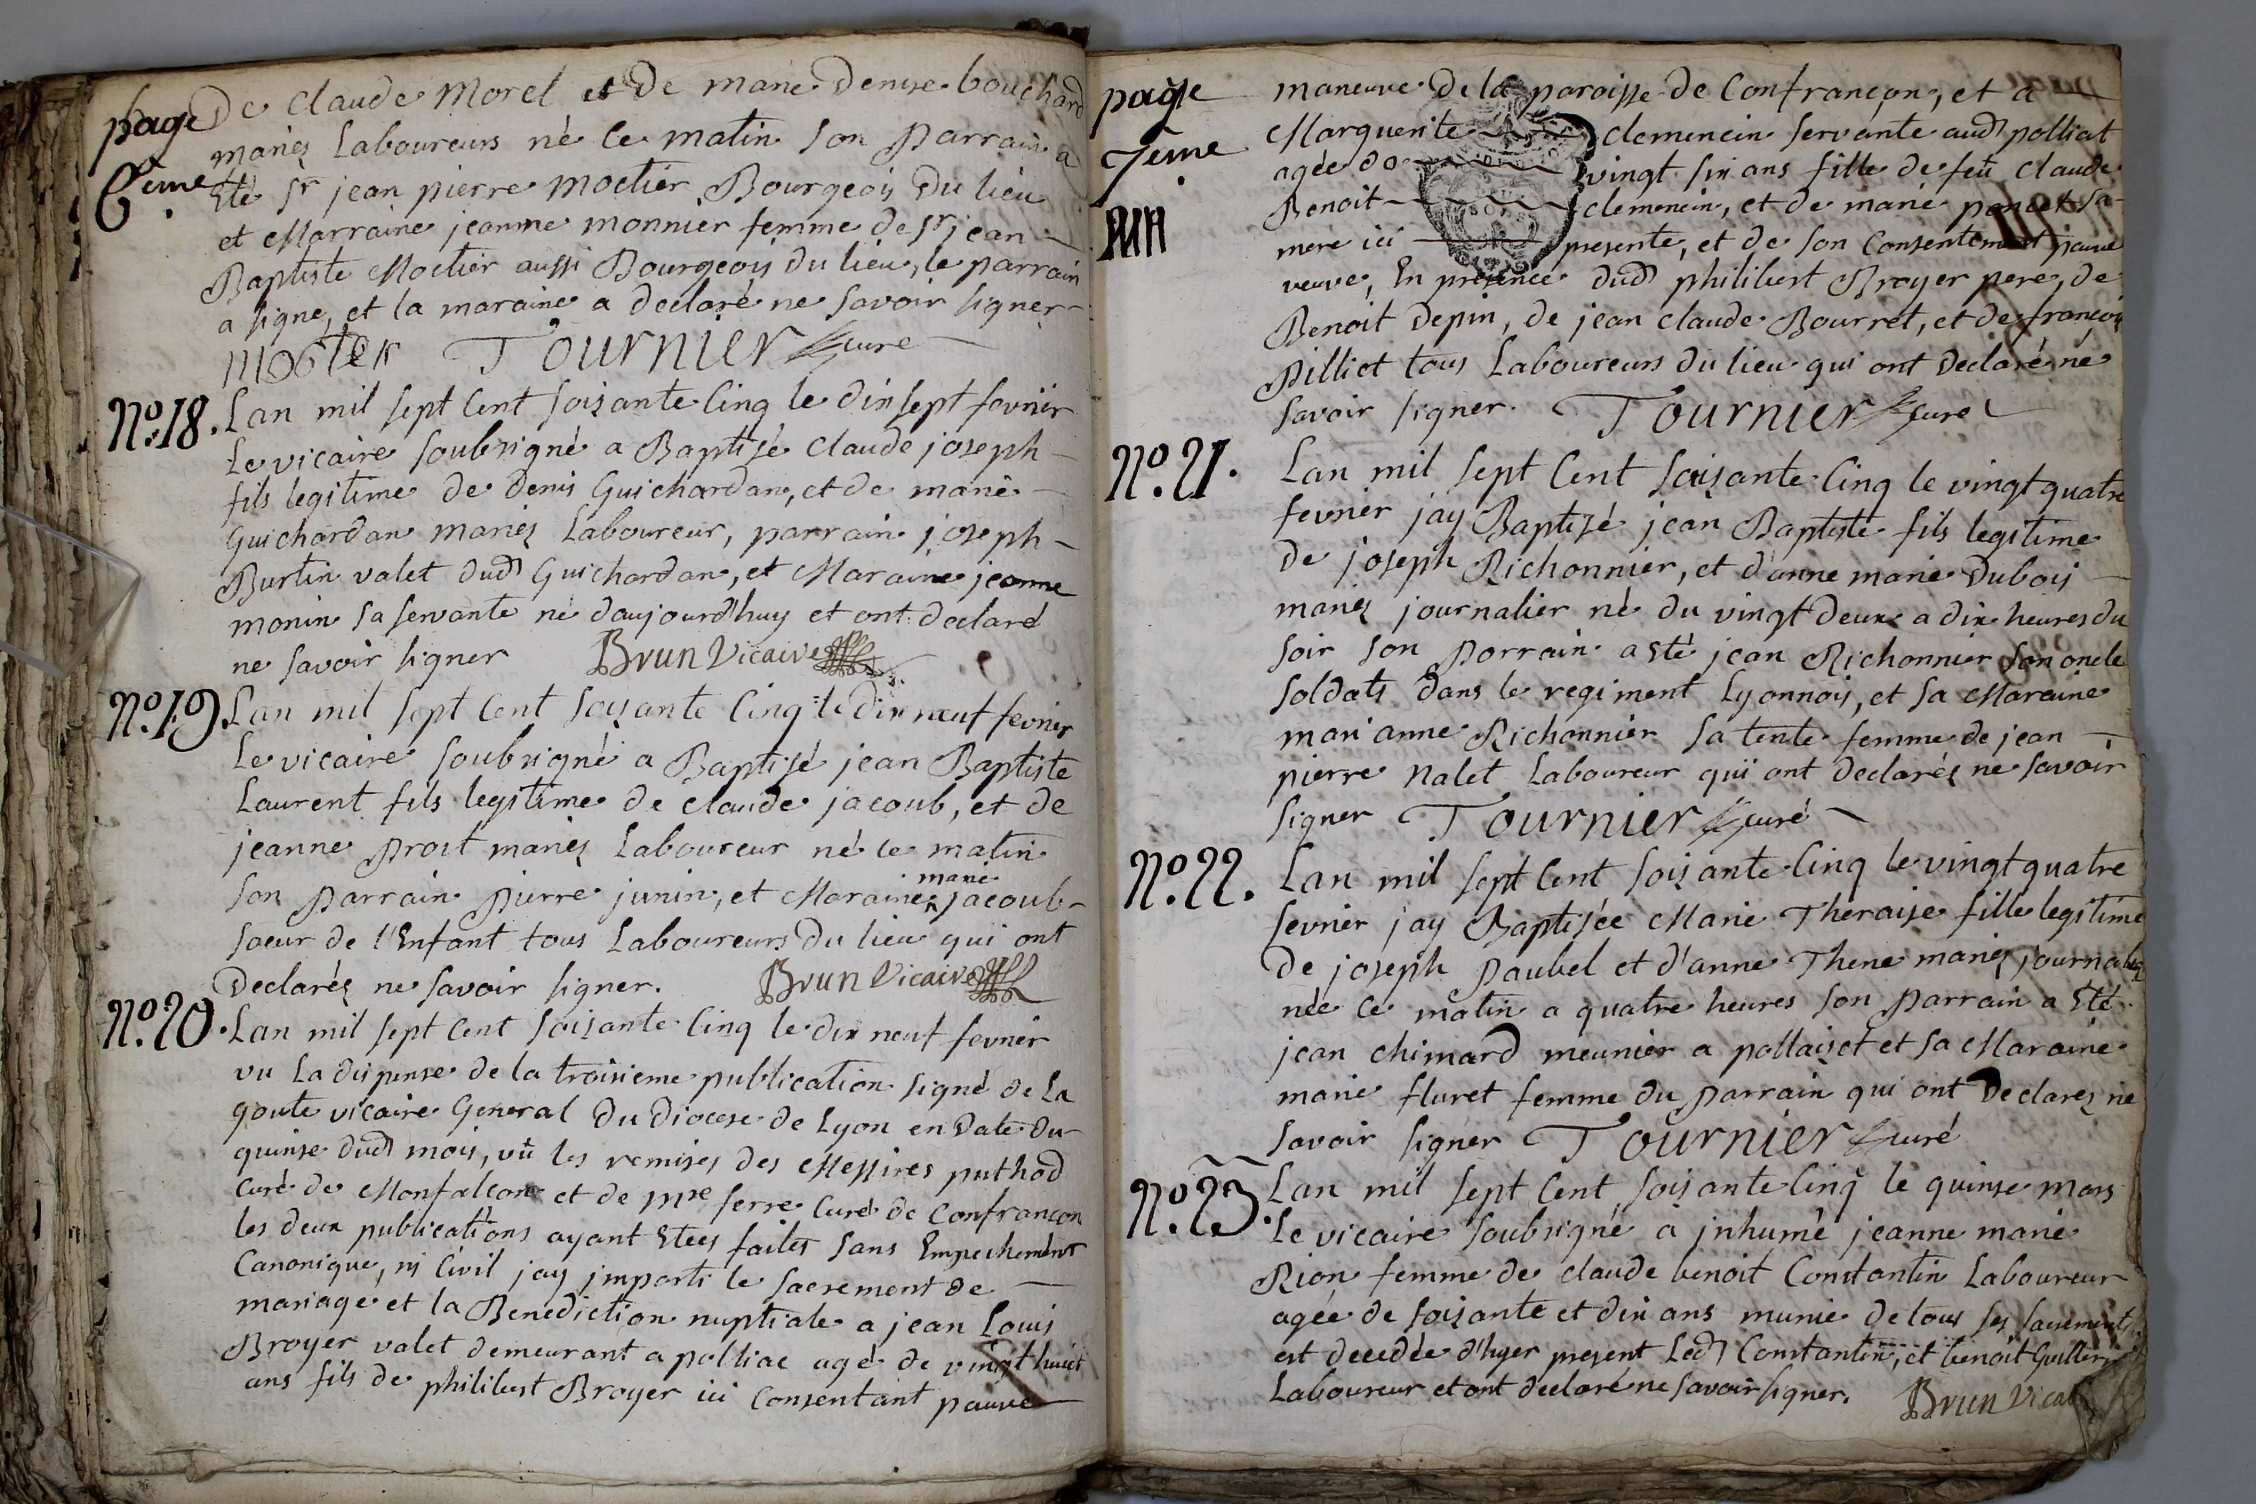 page
6eme
De claude Morel et De marie Denise bouchard
mariez Laboureurs né Ce matin Son Parrain a
Eté Sr jean pierre moctier Bourgeois Du lieu
et Marraine jeanne monnier femme de Sr jean
Baptiste Moctier aussi Bourgeois du lieu, le parrain
a signe, et la maraine a declaré ne savoir signer
Tournier Curé
No. 18.
Lan mil sept Cent soisante Cinq le dix sept fevrier
Le vicaire soubsigné a Baptisé Claude joseph
fils legitime de denis Guichardan, et de marie
Guichardan mariez Laboureur, parrain joseph
Burtin valet dud Guichardan, et Maraine jeanne
monin sa servante né daujourdhuy et ont declaré
ne savoir signer Brun Vicaire
No. 19.
Lan mil sept Cent soisante Cinq le dix neuf fevrier
Le vicaire soubsigné a Baptisé jean Baptiste
Laurent fils legitime de Claude jacoub, et de
jeanne Prost mariez Laboureur né ce matin
marie
son Parrain Pierre junin, et Maraine jacoub
soeur de l'Enfant tous Laboureurs Du lieu qui ont
Declarez ne savoir signer. Brun Vicaire
No. 20.
Lan mil sept Cent soisante Cinq le dix neuf fevrier
vu La dispense de la troisieme publication signé de La
goute vicaire General Du Diocese de Lyon en Date du
quinse dud mois, vû les remises des Messires puthod
Curé de Monfalcon et de Mre serre Curé de Confrancon
les deux publications ayant Etees faites sans Empechement
Canonique, ni Civil jay imparti le sacrement de
mariage et la Benediction nuptiale a jean Louis
Broyer valet demeurant a polliac agé de vingt huict
ans fils de philibert Broyer ici Consentant pauvre
page
7eme
maneuvre De la paroisse de Confrancon, et a
Marguerite clemencin servante aud polliat
agée de vingt six ans fille de feu Claude
Benoit clemencin, et de marie poncet sa
mere ici presente, et de son Consentement pauvre
veuve, En presence dud philibert Broyer pere, de
Benoit Depin, de jean claude Bourret, et de francois
Pilliet tous Laboureurs du lieu qui ont Declaré ne
savoir signer. Tournier Curé
No. 21.
Lan mil sept Cent soisante Cinq le vingt quatre
fevrier jay Baptizé jean Baptiste fils legitime
de joseph Richonnier, et d'anne marie Dubois
mariez journalier né du vingt deux a dix heures du
soir son Parrain a Eté jean Richonnier son oncle
soldats dans le regiment Lyonnois, et sa Maraine
marianne Richonnier sa tente femme de jean
pierre Nalet Laboureur qui ont declarez ne savoir
signer Tournier Curé
No. 22.
Lan mil sept Cent soisante Cinq le vingt quatre
fevrier jay Baptisée Marie Theraise fille legitime
de joseph Paubel et d'anne Thene mariez journaliers
née ce matin a quatre heures son Parrain a Eté
jean chimard meunier a pollaiset et sa Maraine
marie fluret femme du parrain qui ont Declarez ne
savoir signer Tournier Curé
No. 23.
Lan mil sept Cent soisante Cinq le quinse mars
Le vicaire soubsigné a jnhumé jeanne marie
Rion femme de Claude benoit Constantin Laboureur
agée de soisante et dix ans munie de tous ses sacrements
est decedée d'hyer present Led Constantin, et benoit
Laboureur et ont declaré ne savoir signer. Brun Vicaire